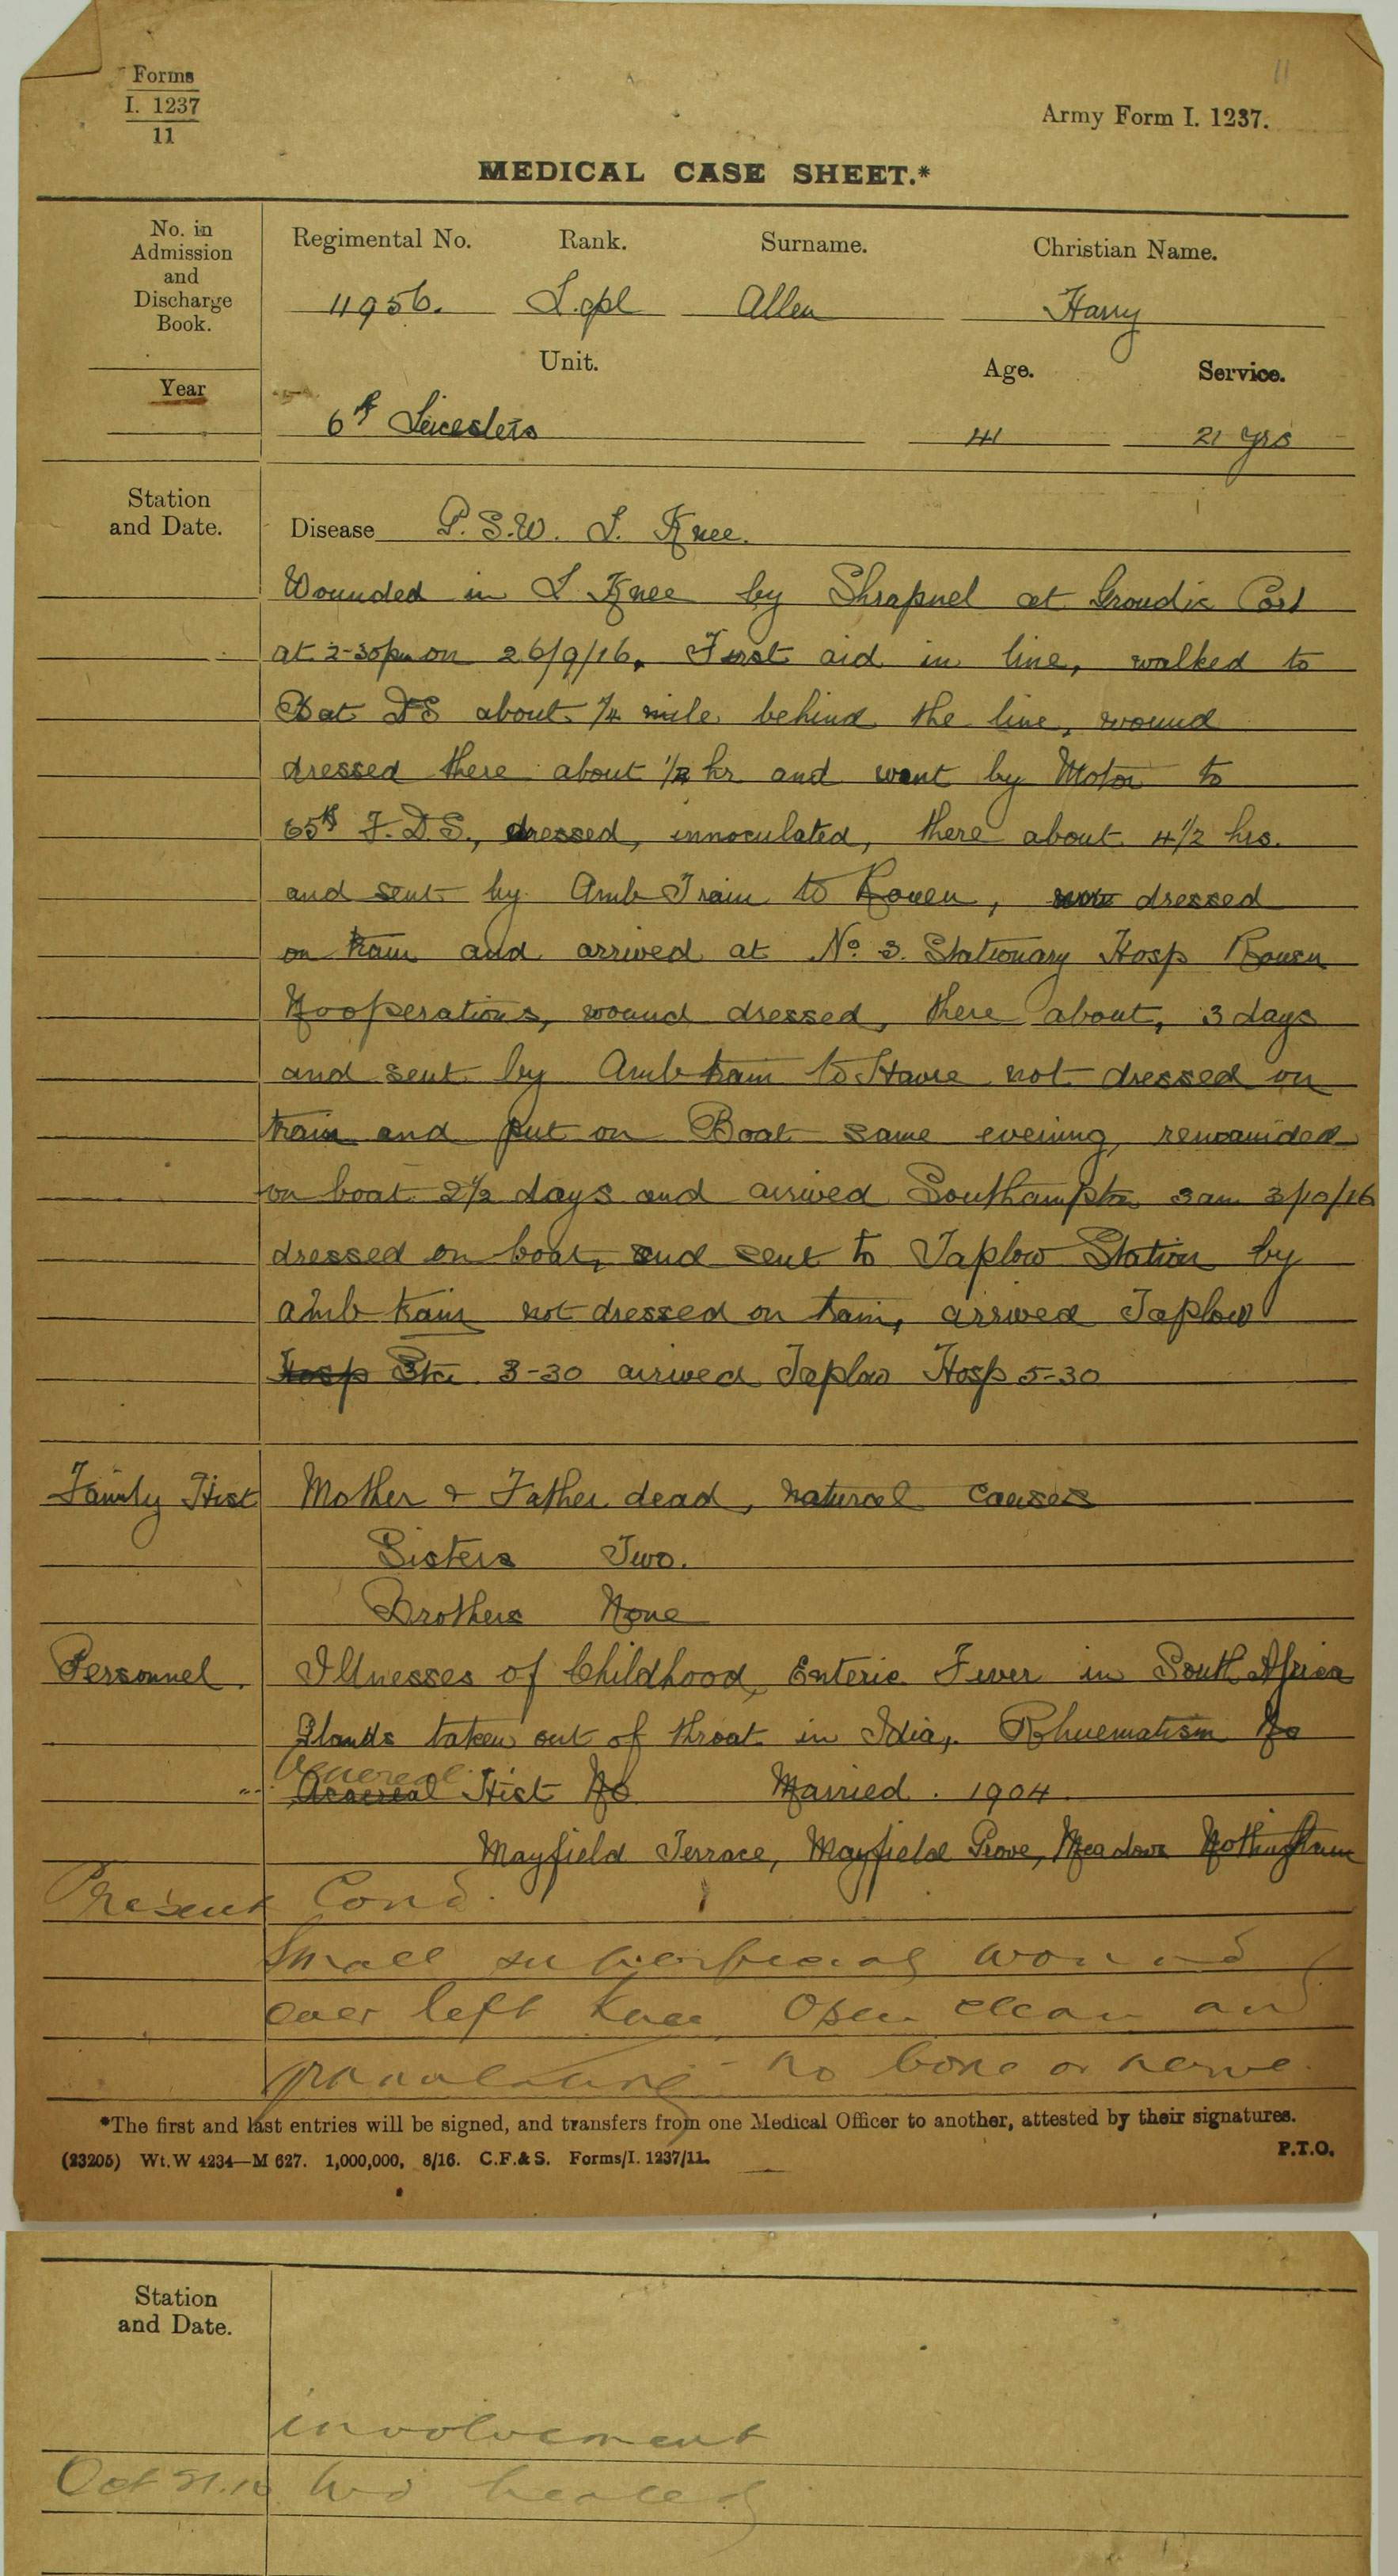 11
Forms
I. 1237
11
Army Form I. 1237.
MEDICAL CASE SHEET.*
No. in
Admission
and
Discharge
Book.
Year
Regimental No. Rank. Surname. Christian Name.
11956. L.cpl Allen Harry
Unit. Age. Service.
6th Leicesters 41 21 yrs
Station
and Date.
Disease G.S.W. L. Knee.
Wounded in L. Knee by Shrapnel at
at 2-30pm on 26/9/16. First aid in line, walked to
Bat DS about 1/4 mile behind the line, wound
dressed there about 1/2 hr and went by Motor to
65th F.D.S., dressed, innoculated, there about 4 1/2 hrs.
and sent by Amb Train to Rouen, dressed
on train and arrived at No. 3. Stationary Hosp Rouen
No operations, wound dressed, there about, 3 days
and sent by Amb train to Havre not dressed on
train and put on Boat same evening, remainded
on boat 2 1/2 days and arrived Southampton 3am 3/10/16
dressed on boat, and sent to Taplow Station by
amb train not dressed on train, arrived Taplow
Hosp Sta. 3-30 arrived Taplow Hosp 5-30
Family Hist Mother & Father dead, natural causes
Sisters Two.
Brothers None
Personnel. Illnesses of Childhood, Enteric Fever in South Africa
Glands taken out of throat in Idia, Rhuematism No
Venereal
Hist No Married. 1904.
Mayfield Terrace, Mayfield Grove, Meadows Nottingham
Present Cond.
Small superficial wound
over left knee. Open clean and
granulating - no bone or nerve
*The first and last entries will be signed, and transfers from one Medical Officer to another, attested by their signatures.
(23205) Wt.W 4234—M 627. 1,000,000, 8/16. C.F.& S. Forms/I. 1237/11.
P.T.O.
Station
and Date.
involvement
Oct 21.16 Wd healed